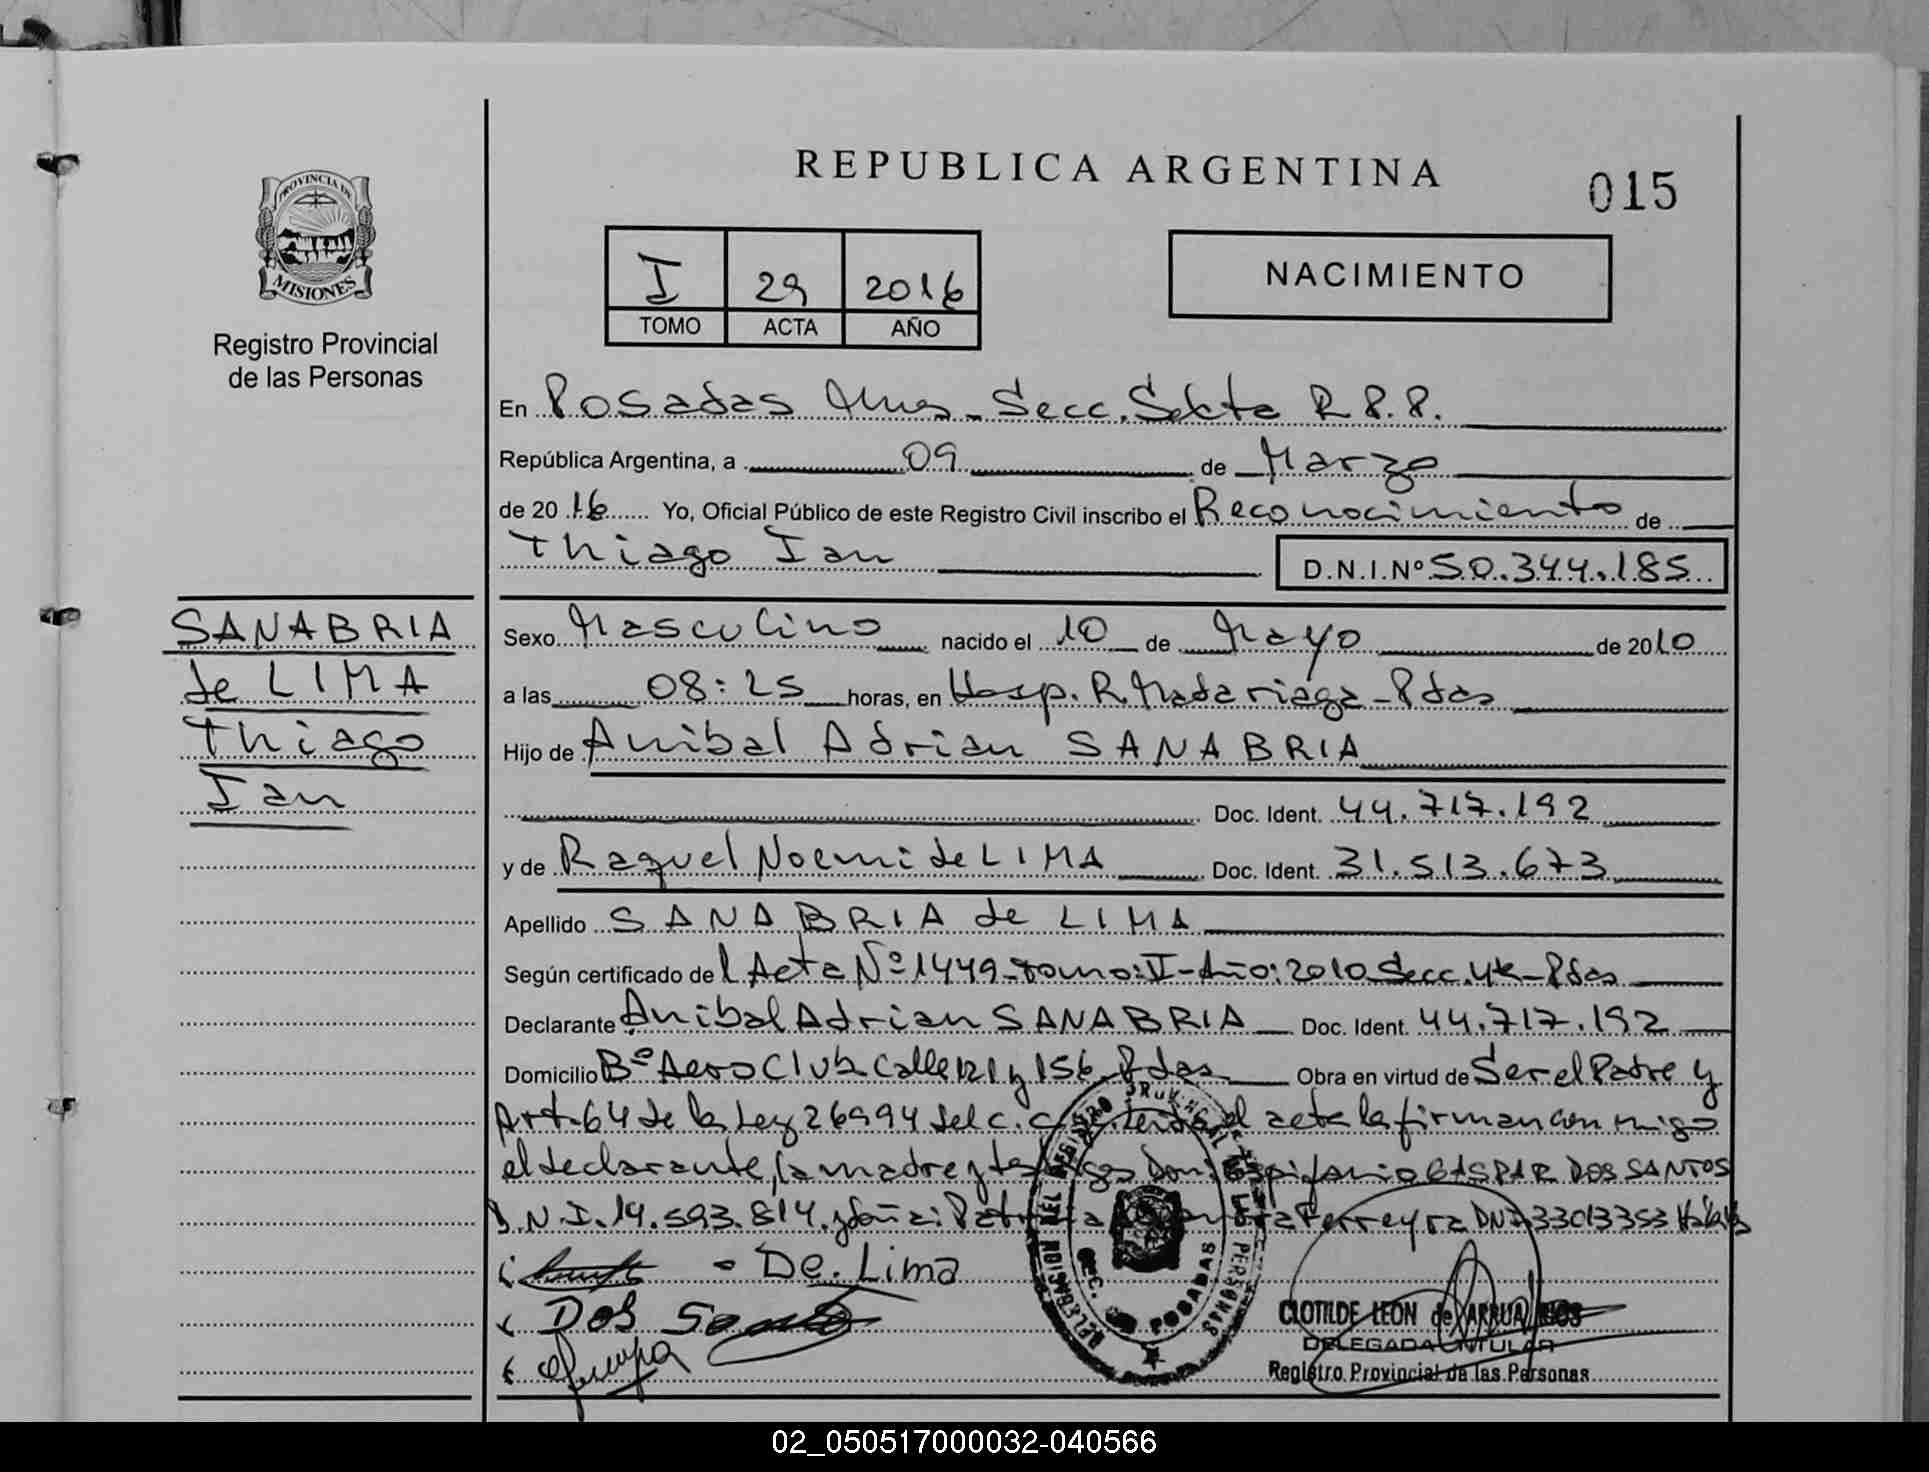 REPUBLICA ARGENTINA
015
PROVINCIA DE
MISIONES
Registro Provincial
de las Personas
I 29 2016
TOMO ACTA AÑO
NACIMIENTO
En Posadas Mnes. Secc. Sexta R.P.P.
República Argentina, a 09 de Marzo
de 2016 Yo, Oficial Público de este Registro Civil inscribo el Reconocimiento de
Thiago Ian D.N.I.Nº 50.344.185
SANABRIA
de LIMA
Thiago
Ian
Sexo Masculino nacido el 10 de Mayo de 2010
a las 08:25 horas, en Hosp. R. Madariaga - Pdas
Hijo de Anibal Adrian SANABRIA
Doc. Ident. 44.717.192
y de Raquel Noemi de LIMA Doc. Ident. 31.513.673
Apellido SANABRIA de LIMA
Según certificado del Acta Nº 1449 - Tomo: II - Año: 2010 Secc. 4ta - Pdas
Declarante Anibal Adrian SANABRIA Doc. Ident. 44.717.192
Domicilio Bº Aero Club Calle 121 y 156 Pdas Obra en virtud de Ser el Padre y
Art. 64 de la Ley 26994 del c.c. el acta la firman conmigo
el declarante, la madre y testigos Don: Epifanio GASPAR DOS SANTOS
D.N.I. 14.593.814 y doña: Ferreyra DNI 33013353
De. Lima
Dos
CLOTILDE LEON de ARRUA
DELEGADA TITULAR
Registro Provincial de las Personas
DELEGACION DEL REGISTRO PROVINCIAL DE LAS PERSONAS
SEC. POSADAS
02_050517000032-040566